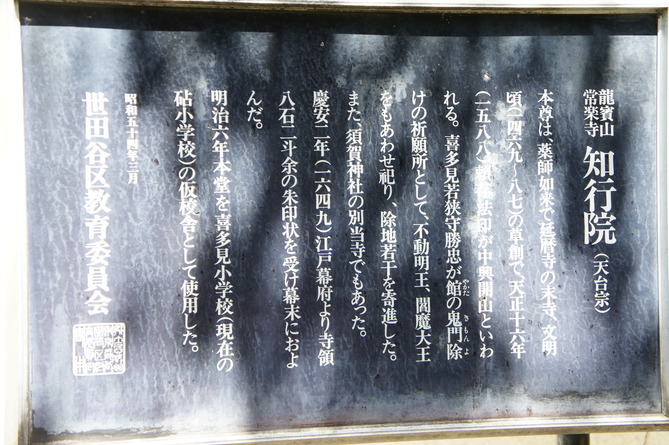 龍寳山
常楽寺
知行院(天台宗)
本尊は、薬師如来で延暦寺の末寺、文明
頃(一四六九〜八七)の草創で、天正十六年
(一五八八)法印が中興開山といわ
れる。喜多見若狭守勝忠が館の鬼門除
やかた
きもんよ
けの祈願所として、不動明王、閻魔大王
をもあわせ祀り、除地若干を寄進した。
また、須賀神社の別当寺でもあった。
慶安二年(一六四九)江戸幕府より寺領
八石二斗余の朱印状を受け幕末におよ
んだ。
明治六年本堂を喜多見小学校(現在の
砧小学校)の仮校舎として使用した。
昭和五十四年三月
世田谷区教育委員会